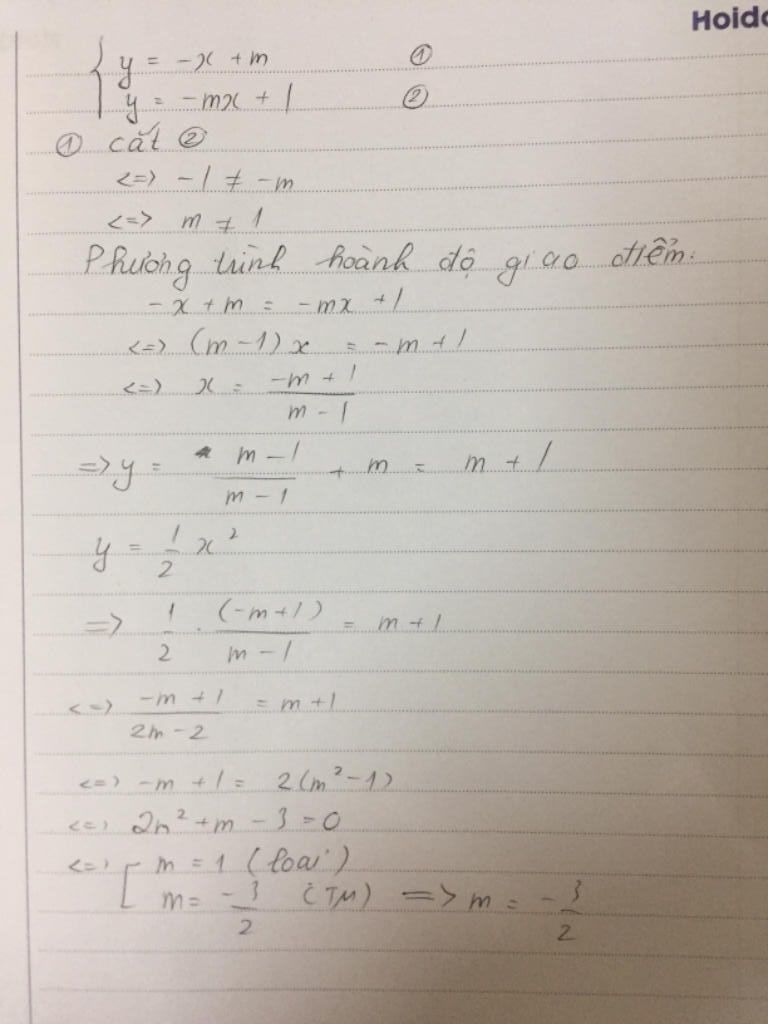 Hoidc
{ y = -x + m ①
y = -mx + 1 ②
① cắt ②
<=> -1 ≠ -m
<=> m ≠ 1
Phương trình hoành độ giao điểm:
-x + m = -mx + 1
<=> (m-1)x = -m + 1
<=> x = \frac{-m + 1}{m - 1}
=> y = \frac{m - 1}{m - 1} + m = m + 1
y = \frac{1}{2} x^2
=> \frac{1}{2} . \frac{(-m+1)}{m - 1} = m + 1
<=> \frac{-m + 1}{2m - 2} = m + 1
<=> -m + 1 = 2(m^2 - 1)
<=> 2m^2 + m - 3 = 0
<=> [ m = 1 (loại)
m = -\frac{3}{2} (TM) => m = -\frac{3}{2}